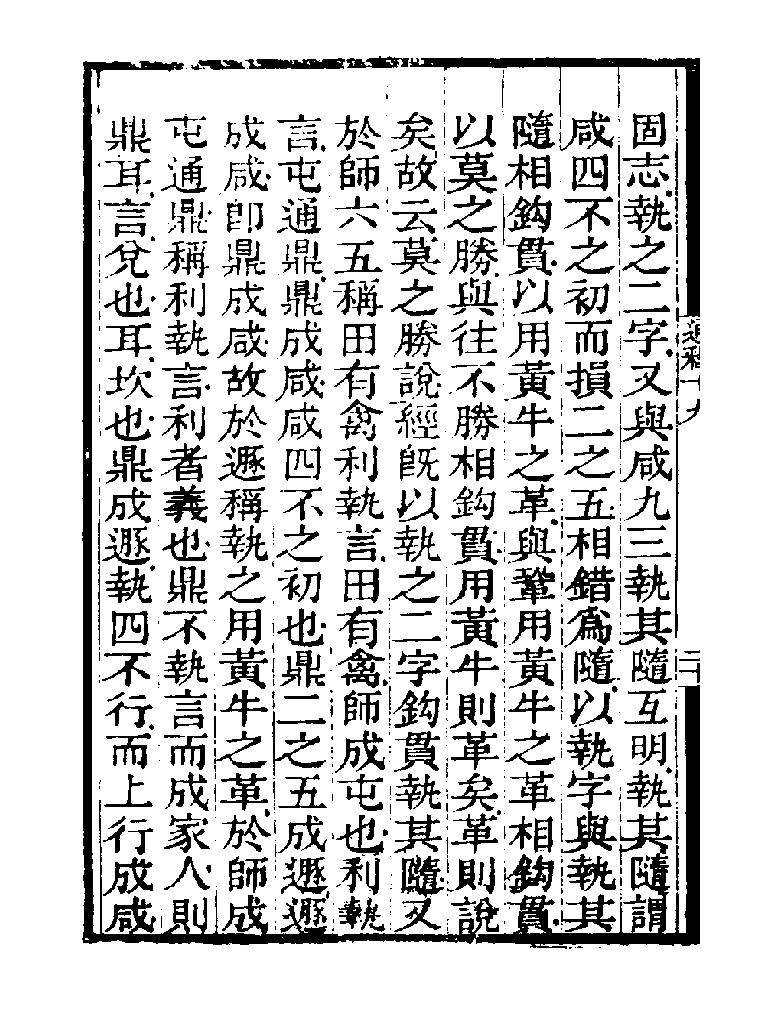 固志執之二字又與咸九三執其隨互明執其隨謂
咸四不之初而損二之五相錯為隨以執字與執其
隨相鈎貫以用黃牛之革與鞏用黃牛之革相鈎貫
以莫之勝與往不勝相鈎貫用黃牛則革矣革則說
矣故云莫之勝說經旣以執之二字鈎貫執其隨又
於師六五稱田有禽利執言田有禽師成屯也利執
言屯通鼎鼎成咸咸四不之初也鼎二之五成遯遯
成咸卽鼎成咸故於遯稱執之用黃牛之革於師成
屯通鼎稱利執言利者義也鼎不執言而成家人則
鼎耳言兌也耳坎也鼎成遯執四不行而上行成咸
通釋十九
二十